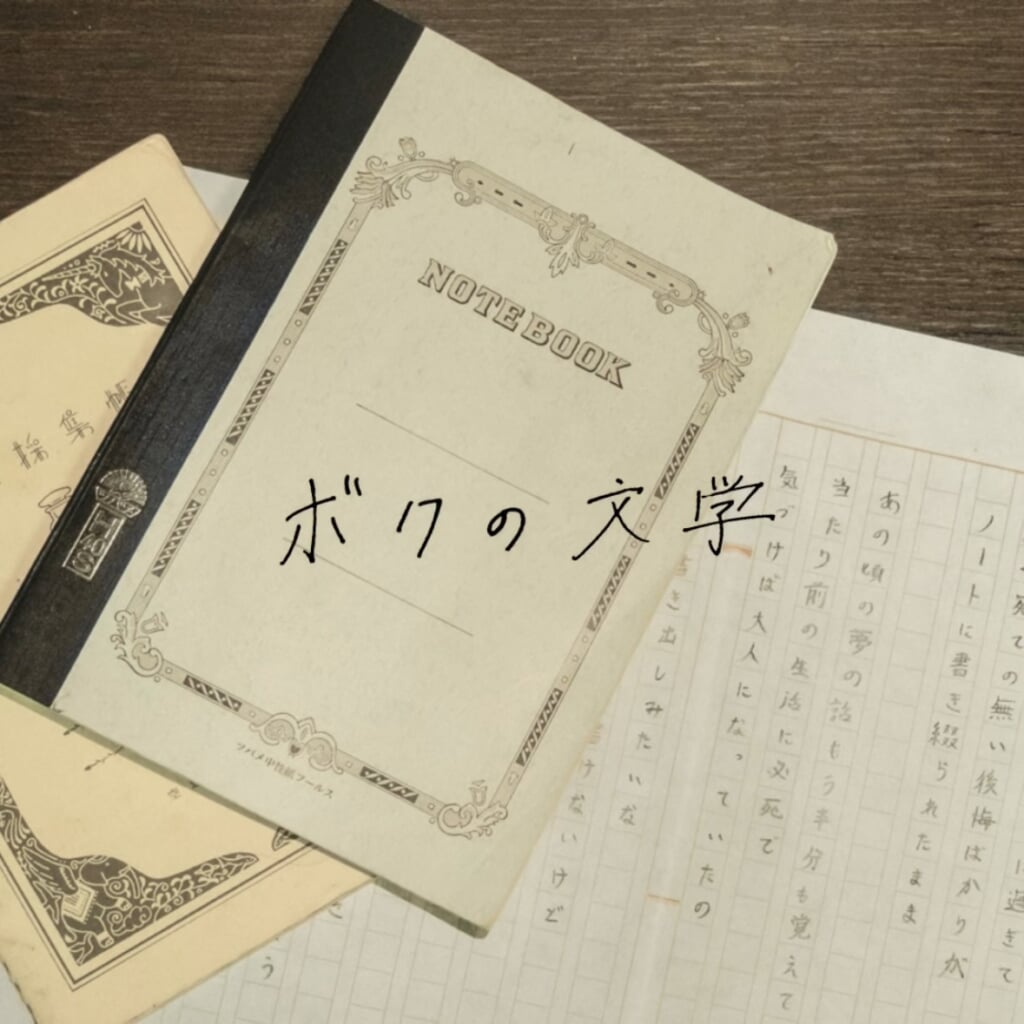 NOTEBOOK
ボクの文学
ツバメ中性紙フールス
採集帳
宛ての無い後悔ばかりが
ノートに書き綴られたまま
あの頃の夢の話もう半分も覚えて
当たり前の生活に必死で
気づけば大人になっていたの
書き出しみたいな
けないけど
う